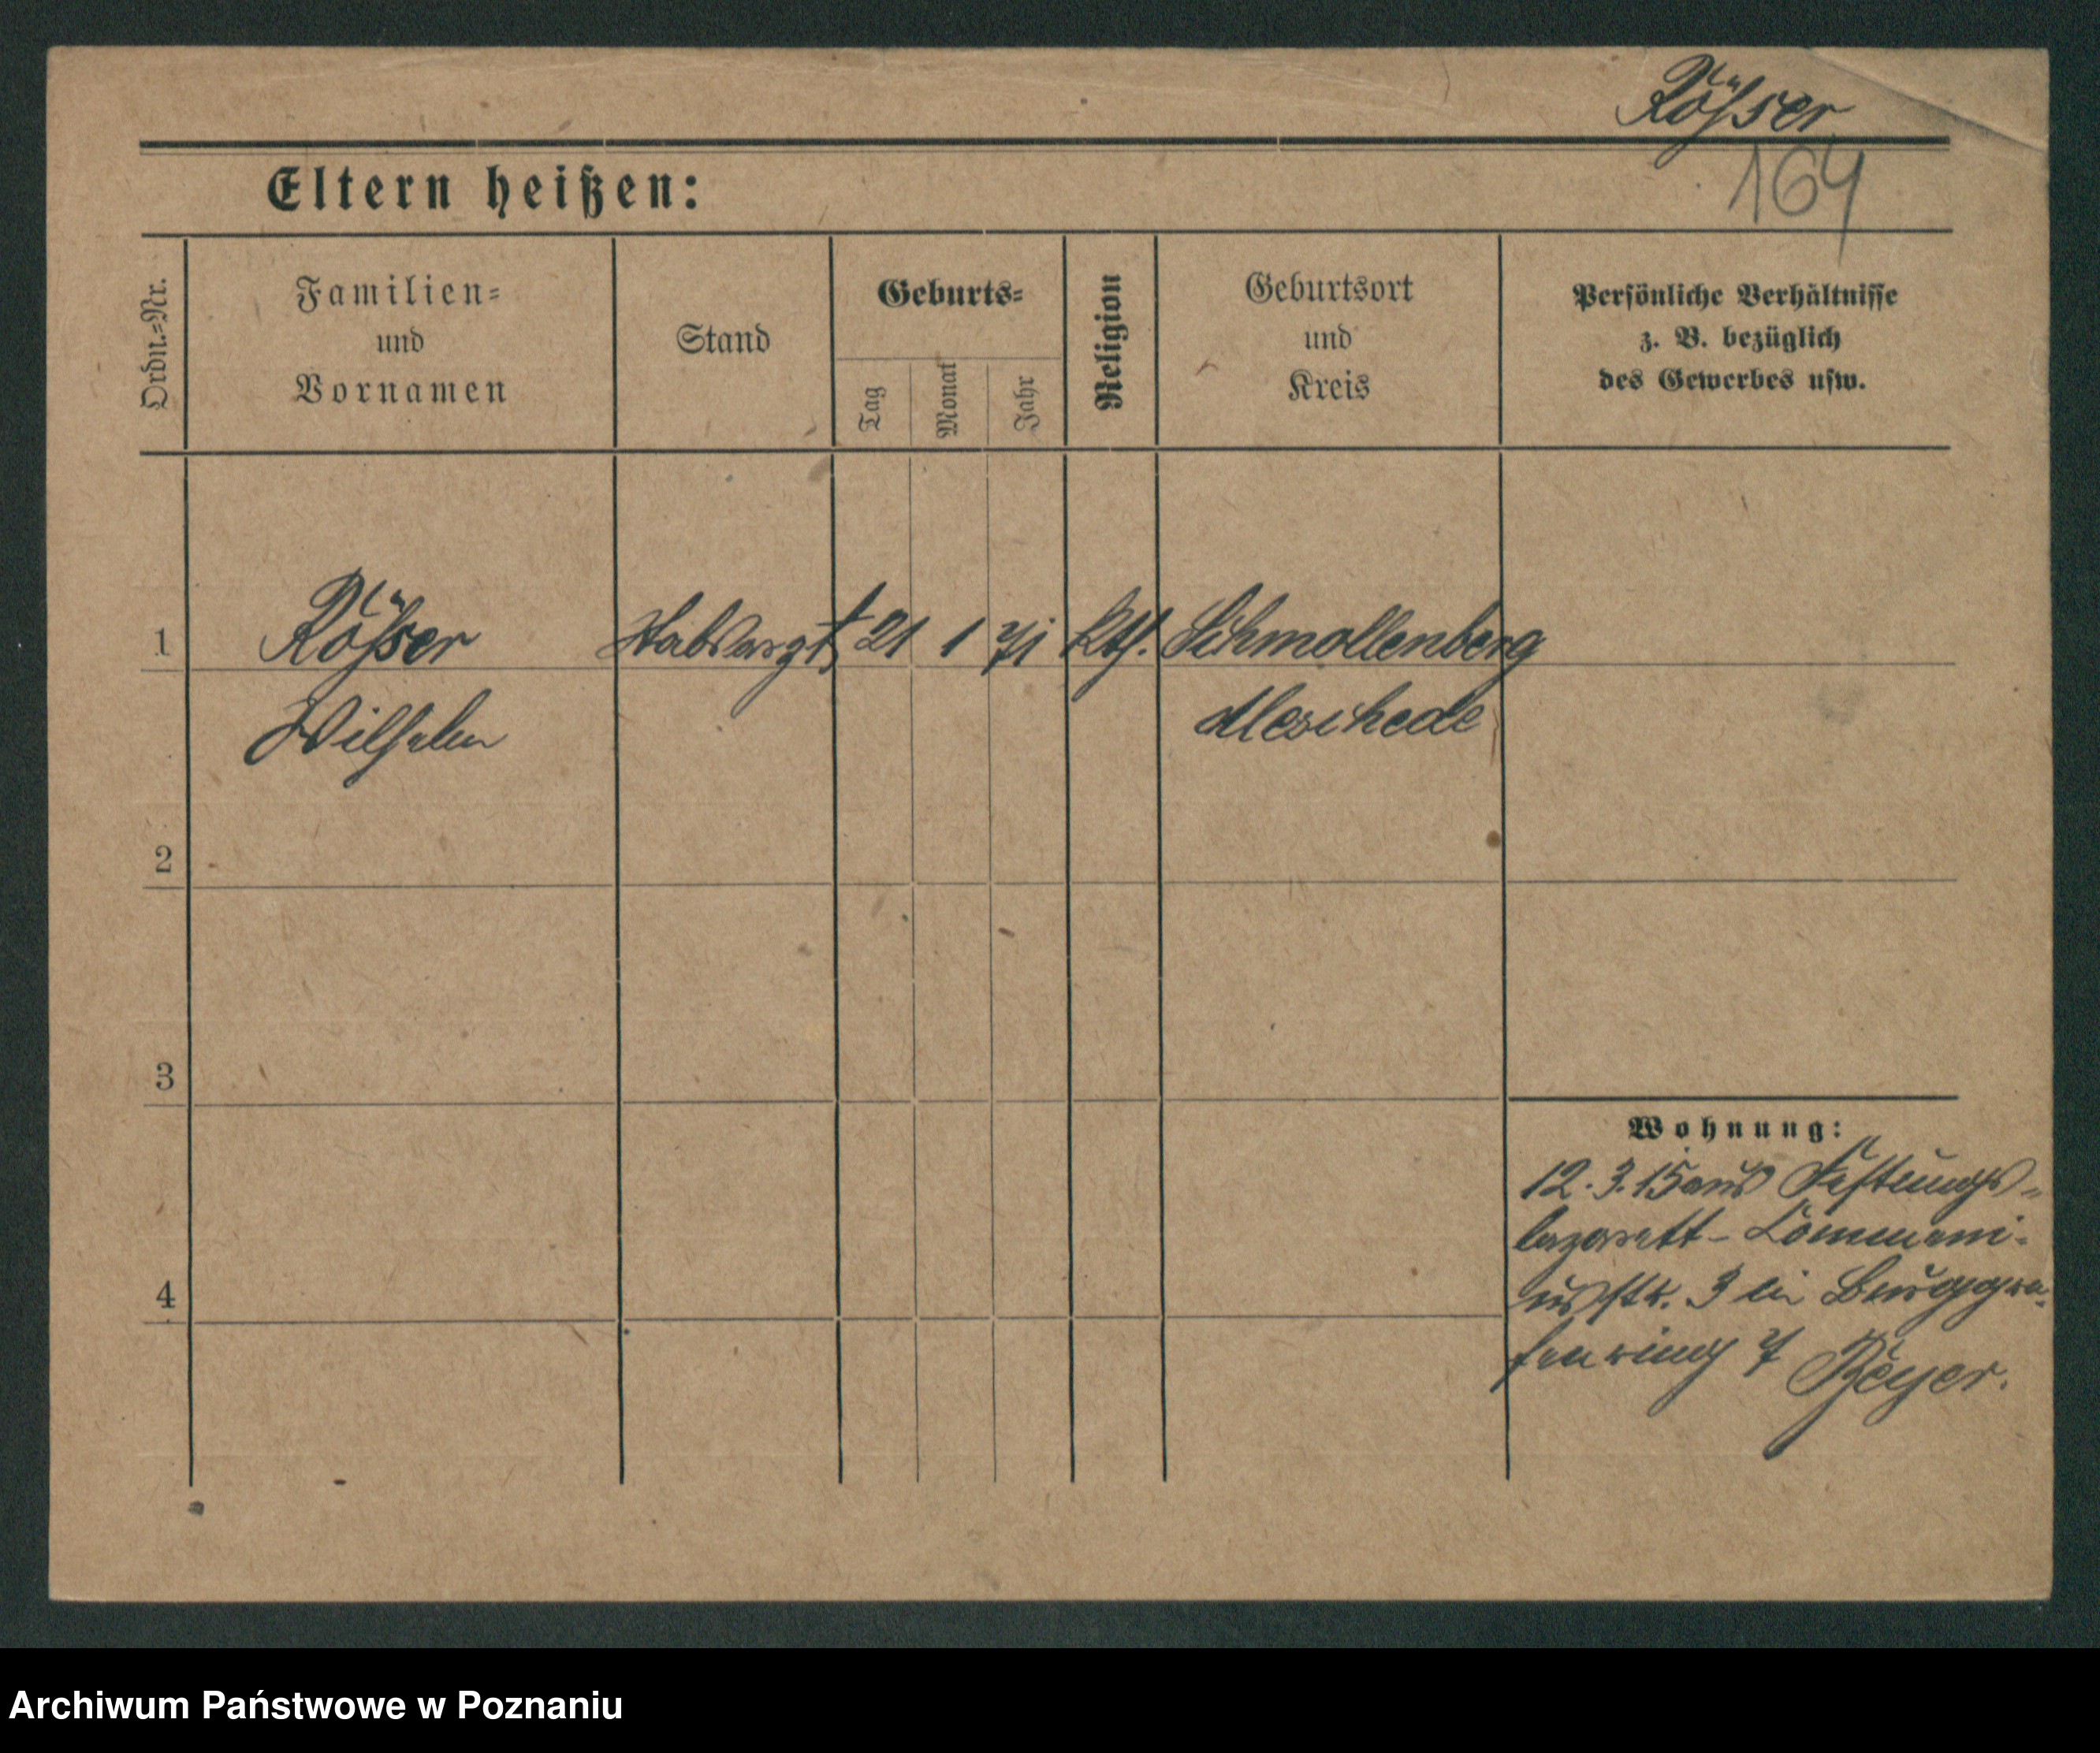 Rößer
164
Eltern heißen:
Ordn.=Nr.
Familien=
und
Vornamen
Stand
Geburts=
Tag
Monat
Jahr
Religion
Geburtsort
und
Kreis
Persönliche Verhältnisse
z. B. bezüglich
des Gewerbes usw.
1 Rößer Stabsarzt 21 1 71 kth. Schmallenberg
Wilhelm Meschede
2
3
Wohnung:
12.3.15 aus Festungs-
lazarett- Commeni-
usstr. 3 in Burggra-
4
fenring 7 Beyer.
Archiwum Państwowe w Poznaniu